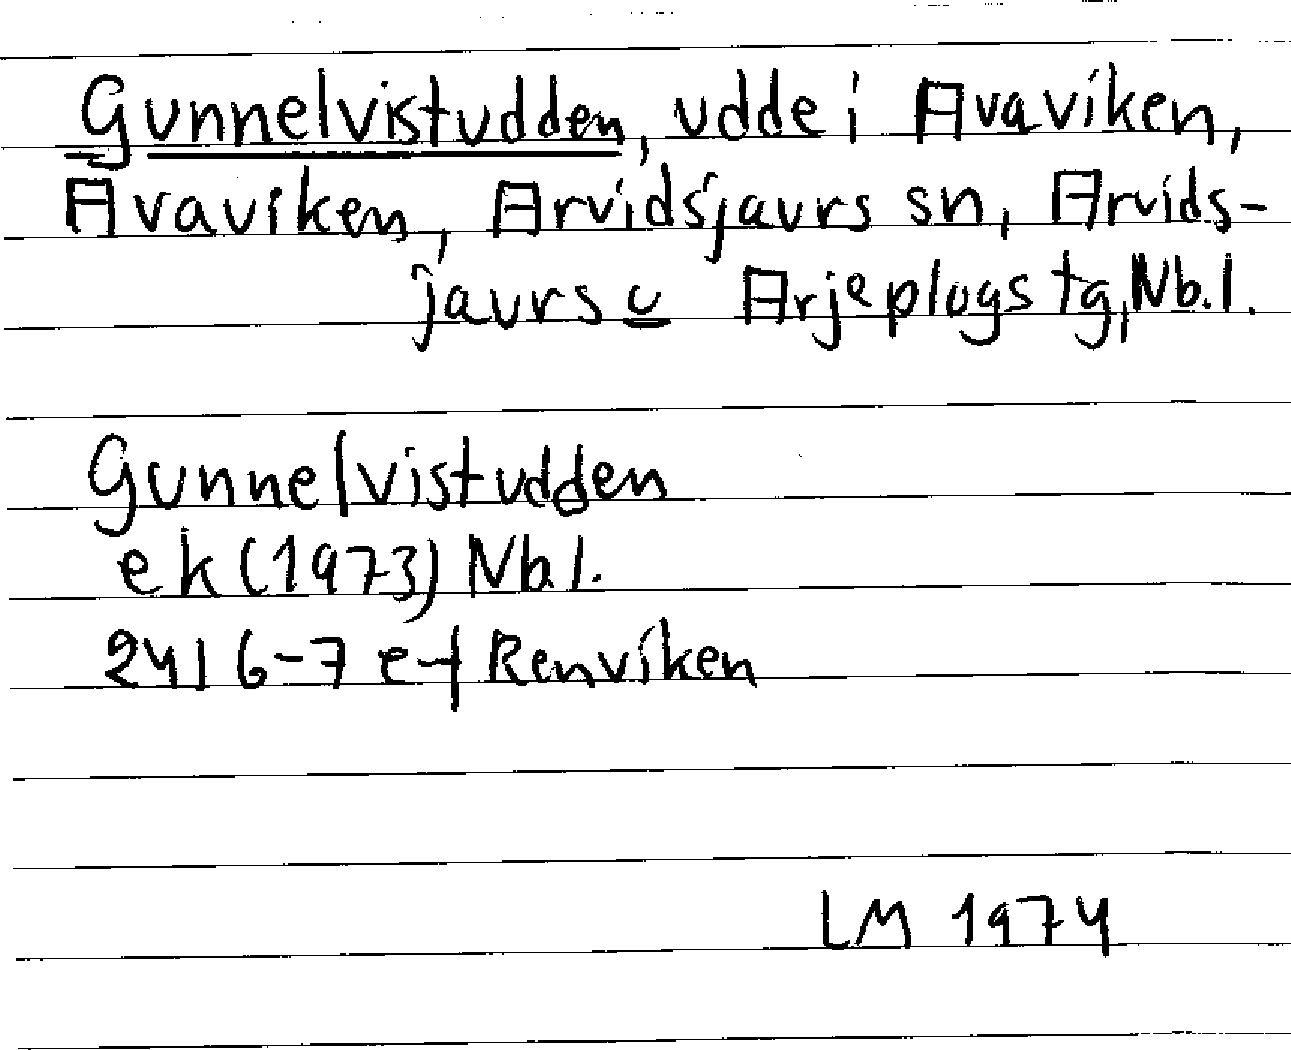 Gunnelvistudden, udde i Avaviken,
Avaviken, Arvidsjaurs sn, Arvids-
jaurs o Arjeplogs tg, Nb.l.
Gunnelvistudden
ek (1973) Nb l.
24I 6-7 e-f Renviken
LM 1974